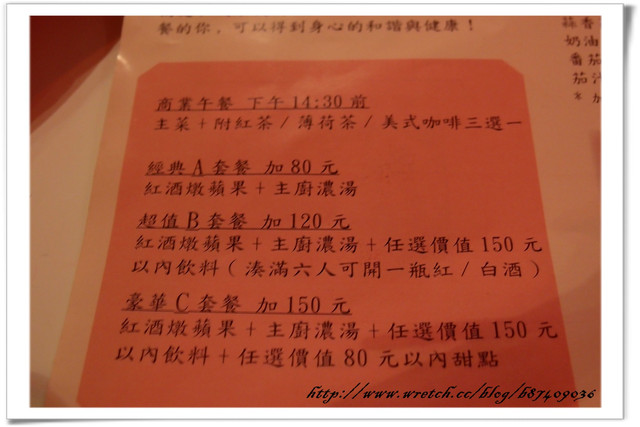 餐的你，可以得到身心的和諧與健康！
蒜香
奶油
番茄
茄汁
商業午餐 下午 14:30 前
主菜＋附紅茶/薄荷茶/美式咖啡三選一
經典 A 套餐 加 80 元
紅酒燉蘋果＋主廚濃湯
超值 B 套餐 加 120 元
紅酒燉蘋果＋主廚濃湯＋任選價值 150 元
以內飲料（湊滿六人可開一瓶紅/白酒）
豪華 C 套餐 加 150 元
紅酒燉蘋果＋主廚濃湯＋任選價值 150 元
以內飲料＋任選價值 80 元以內甜點
http://www.wretch.cc/blog/b87409036